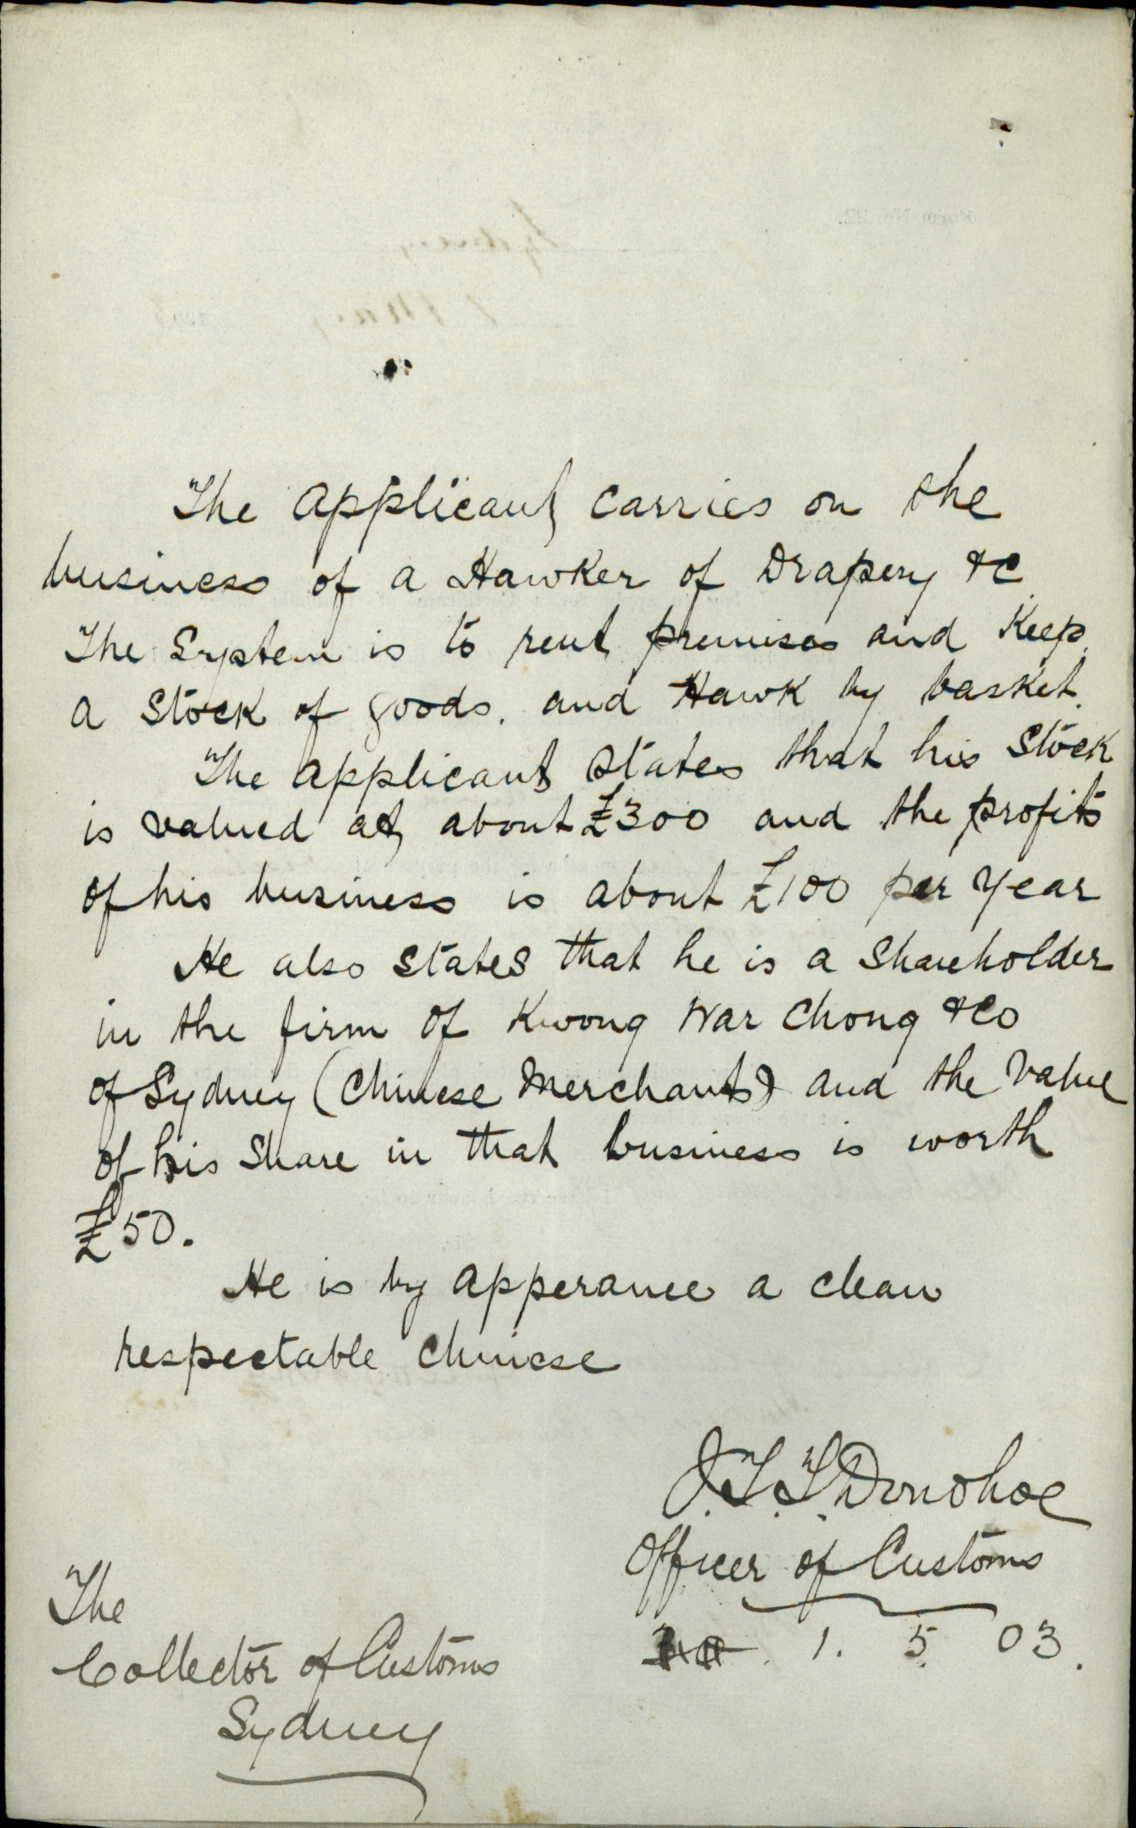 The applicant carries on the
business of a Hawker of Drapery &c
The System is to rent premises and Keep
a Stock of goods. and Hawk by basket.
The applicant states that his Stock
is valued at about £300 and the profits
of his business is about £100 per Year
He also states that he is a Shareholder
in the firm of Kwong War Chong & Co
of Sydney (Chinese Merchants) and the Value
of his Share in that business is worth
£50.
He is by apperance a clean
respectable Chinese
J.T.T. Donohoe
Officer of Customs
1. 5. 03.
The
Collector of Customs
Sydney